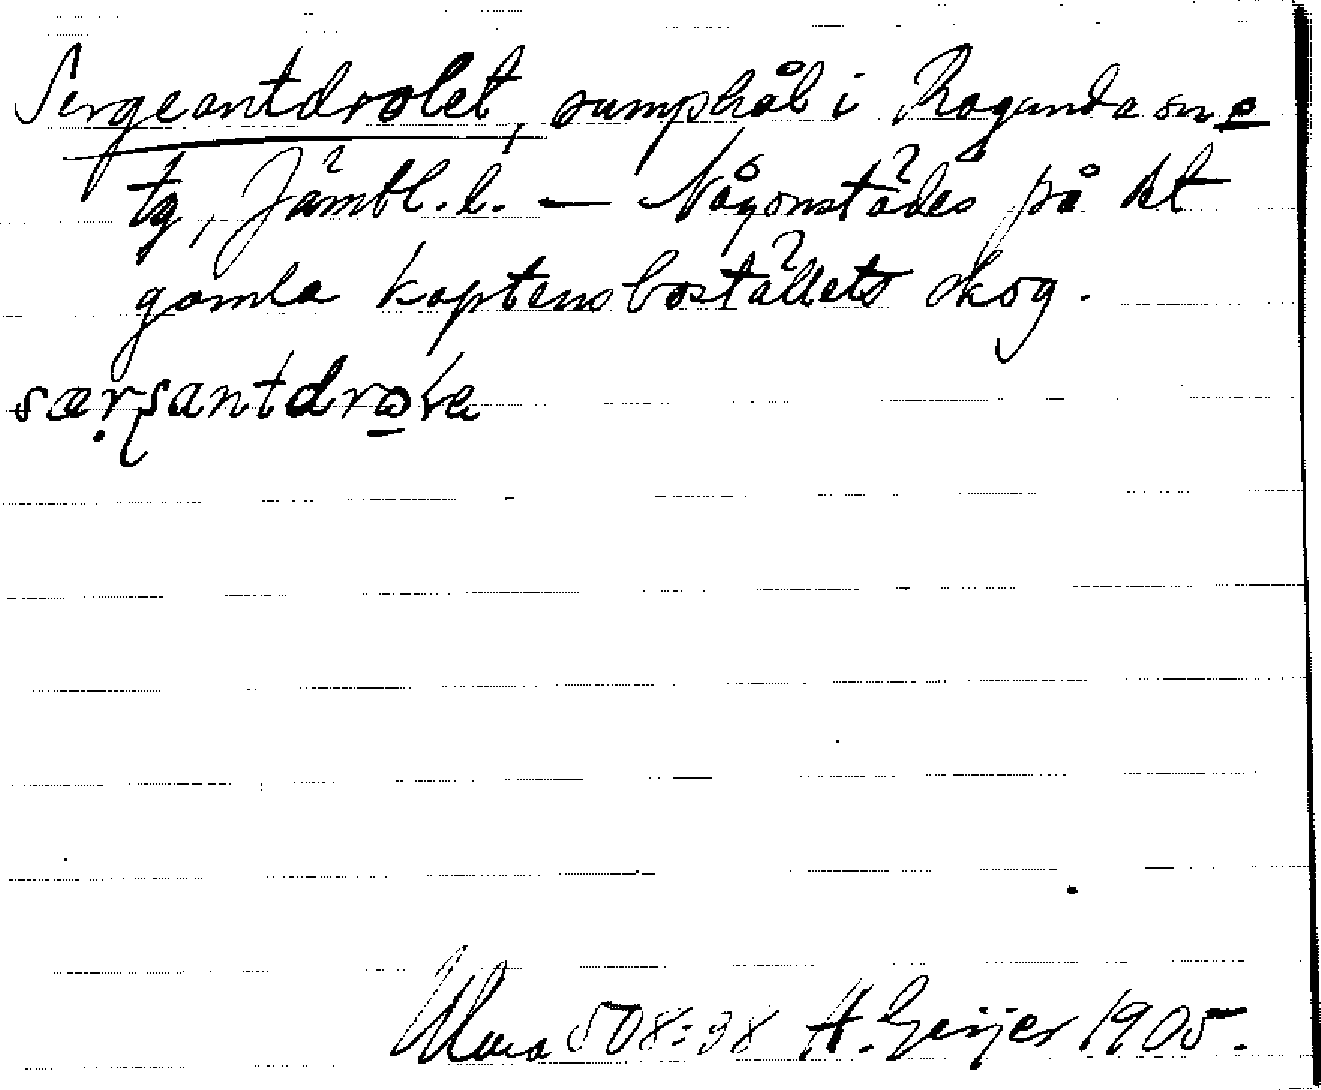 Sergeantdrolet, sumphål i Ragunda sn o
tg, Jämtl. l. — Någonstädes på det
gamla kaptensboställets skog.
særʃantdrole
Ulma 508:38 H. Geijer 1905.